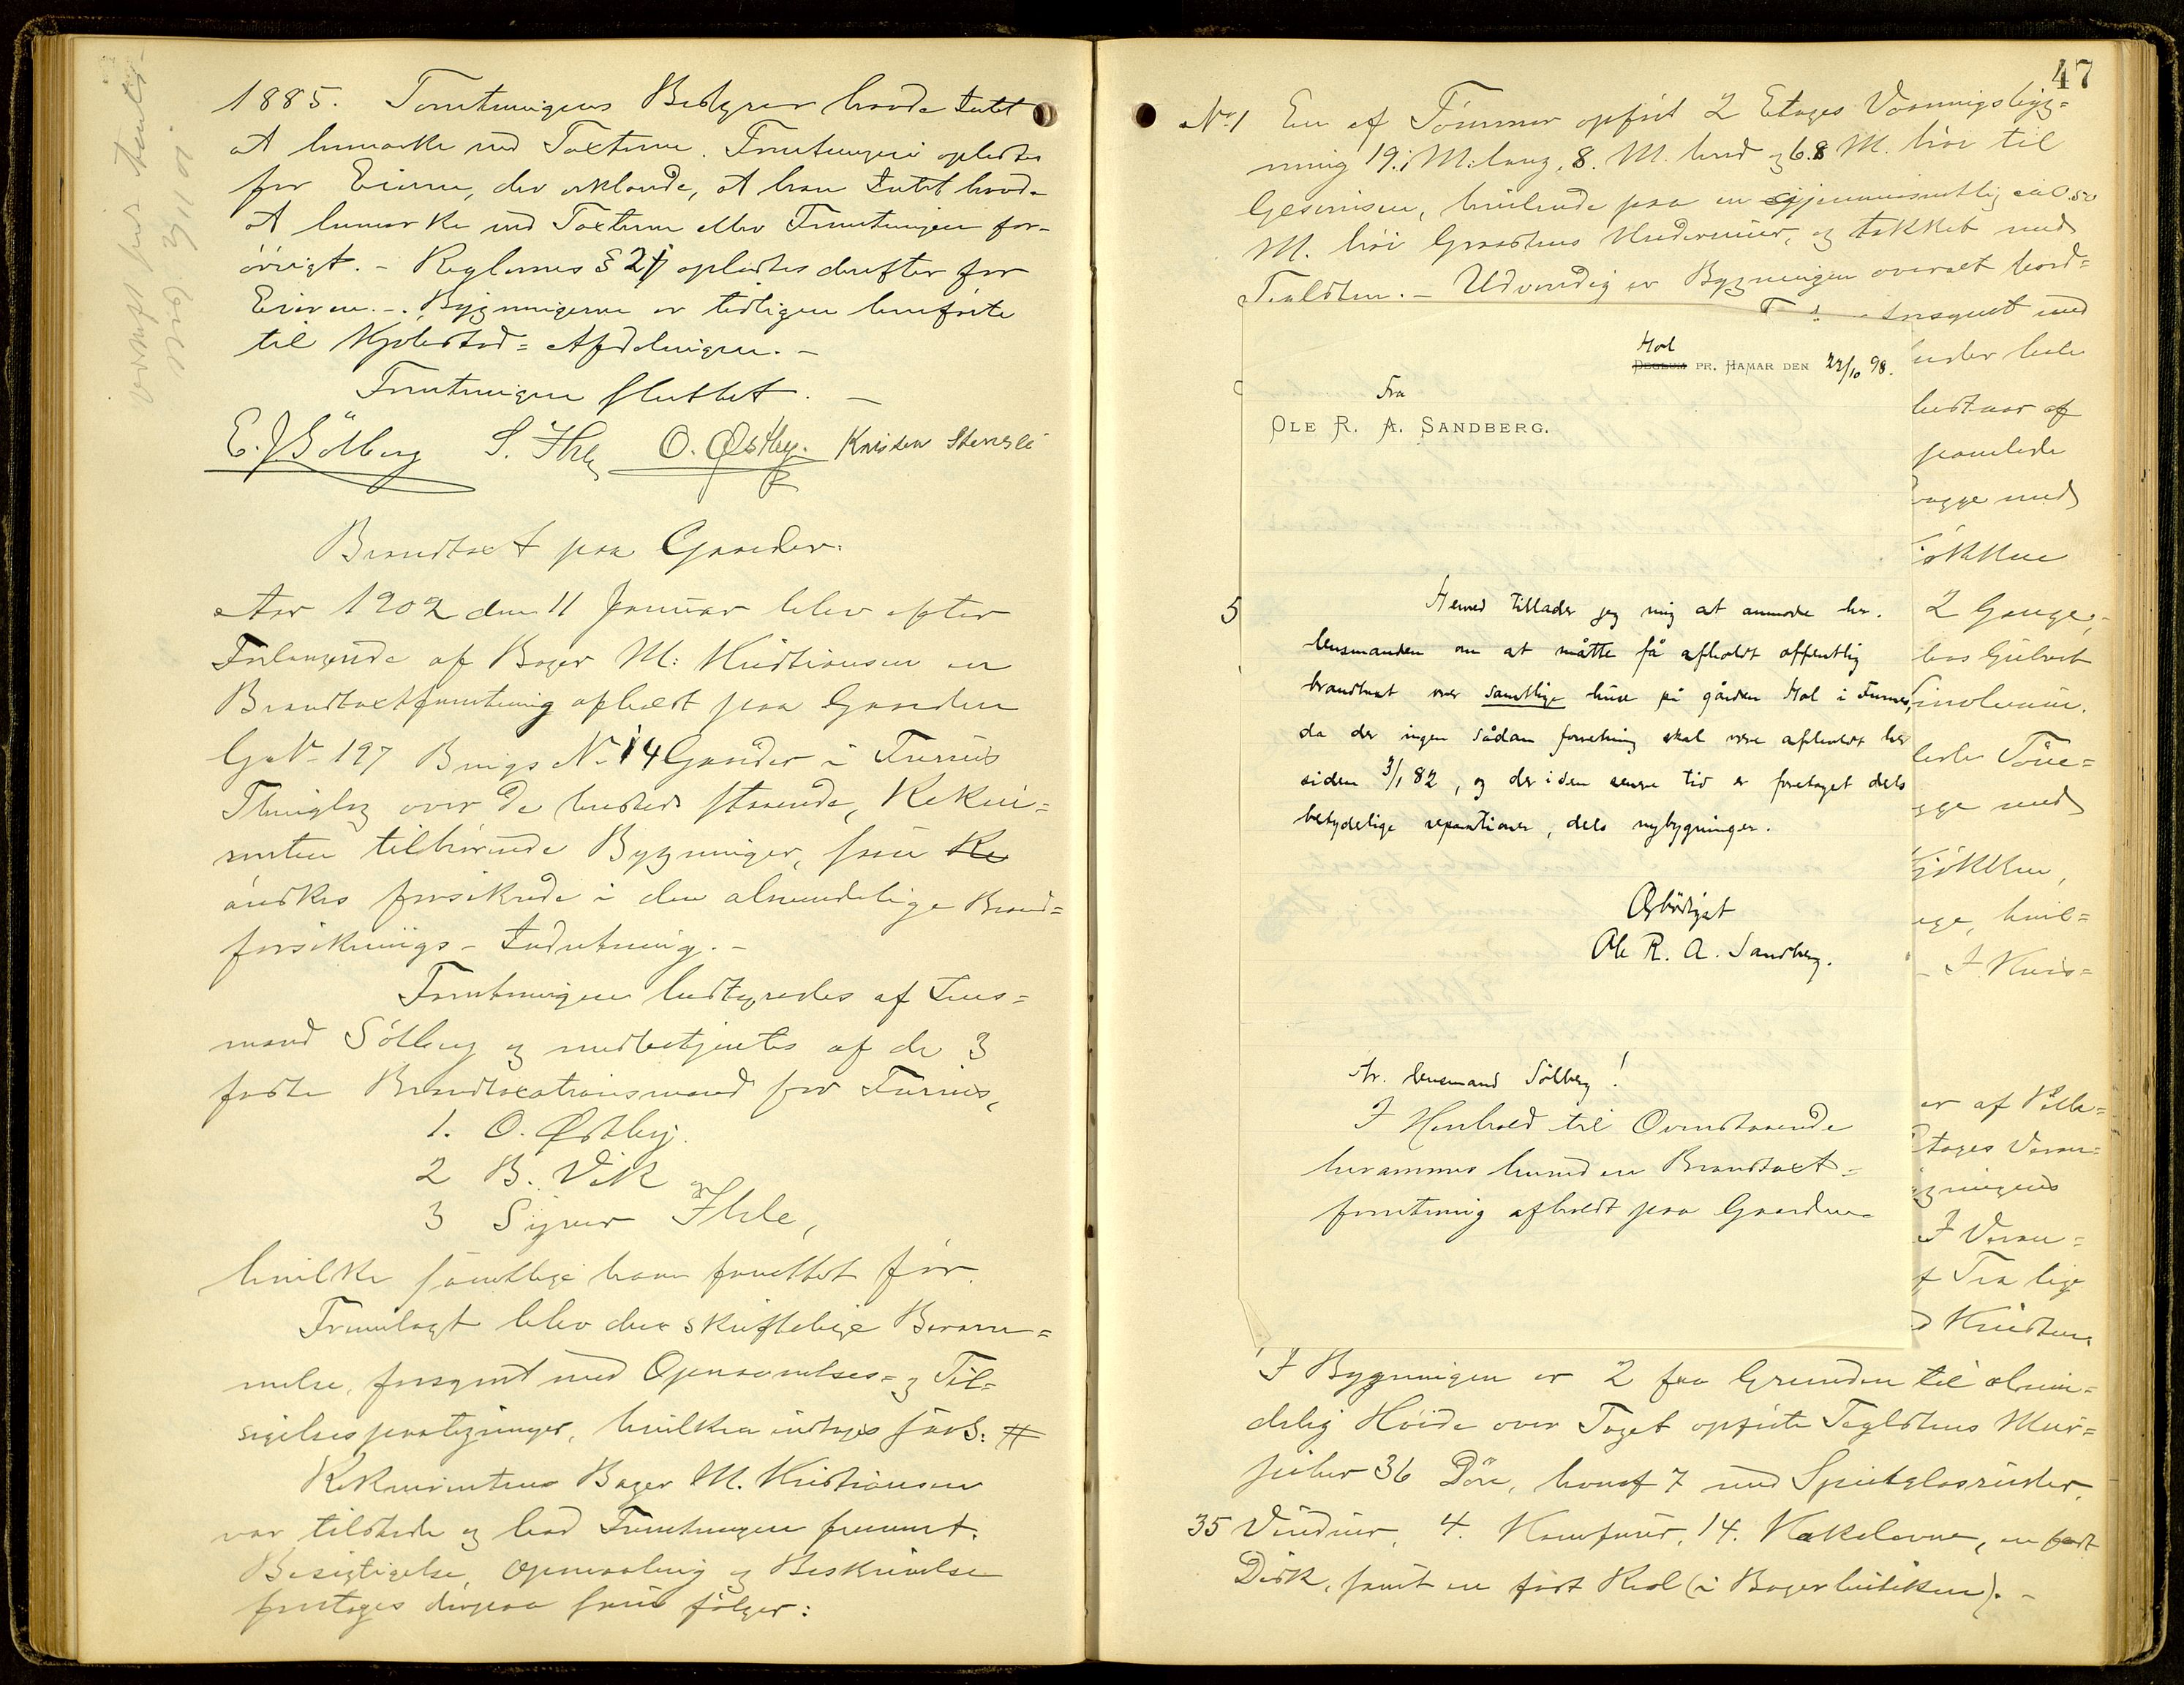 1885. Forretningens Bestyrer havde Intet
at bemærke ved Taxterne. Forretningen oplæstes
for Eieren, der erklærede, at han Intet havde
at bemærke ved Taxterne eller Forretningen for-
øvrigt. - Reglernes § 21 oplæstes derefter for
Eieren. - Bygningerne er tidligere henførte
til Kjøbstad-Afdelingen. -
Forretningen sluttet. -
E. J. Sölberg S. Ihle O. Østby. Kristen Stensli
Brandtaxt paa Gaarder.
Aar 1902 den 11 Januar blev efter
Forlangende af Bager M: Kristiansen en
Brandtaxtforretning afholdt paa Gaarden
Gs N 197 Brugs N 14 i Furnes
Thinglag over de hersteds staaende, Rekvi=
renten tilhørende Bygninger, som Re
ønskes forsikrede i den almindelige Brand=
forsikrings-Indretning. -
Forretningen bestyredes af Lens=
mand Sölberg og medbetjentes af de 3
faste Brandtaxationsmænd for Furnes,
1. O. Østby.
2 B. Vik og
3 Sigvar Ihle,
hvilke samtlige have forrettet før.
Fremlagt blev den skriftelige Beram=
melse, forsynet med Opnævnelses= og Til=
sigelsespaategninger, hvilken indtages saal: #
Rekvirenten Bager M. Kristiansen
var tilstede og bad Forretningen fremmet.
Besigtigelse, Opmaaling og Beskrivelse
foretoges derpaa som følger:
47
No 1 En af Tømmer opført 2 Etages Vaaningsbyg=
ning 19.1 M: lang, 8. M. bred og 6.8 M. høi til
Gesimsen, hvilende paa en gjennemsnitlig ca 0.50
M. høi Graastens Undermur, og tækket med
Teglsten. - Udvendig er Bygningen overalt bord=
forsynet med
under hele
bestaar af
panelede
vægge med
Kjøkken
2 Gange,
hos Gulvet
Linoleum.
lede Töie=
gge med
Kjøkken,
ege, hvil=
I Kvis=
er af Pille=
Etages Veran=
ygningens
I Veran=
f Træ lige
Hol
DEGLUM PR. HAMAR DEN 22/10 98.
Fra
OLE R. A. SANDBERG.
5
Herved tillader jeg mig at anmode hr.
lensmanden om at måtte få afholdt offentlig
brandtaxt over samtlige huse på gården Hol i Furnes,
da der ingen sådan forretning skal være afholdt her
siden 3/1 82, og der i den senere tid er foretaget dels
betydelige reparationer, dels nybygninger.
Ærbödigst
Ole R. A. Sandberg.
Hr. lensmand Sölberg!
I Henhold til Ovenstaaende
berammes herved en Brandtaxt-
forretning afholdt paa Gaarden
I Bygningen er 2 fra Grunden til almin=
delig Høide over Taget opførte Teglstens Mur=
piber 36 Döre, hvoraf 7 med Speilglasruder,
35 Vinduer, 4. Komfurer, 14. Kakelovne, en fast
Disk, samt en fast Reol (i Bagerbutiken). -